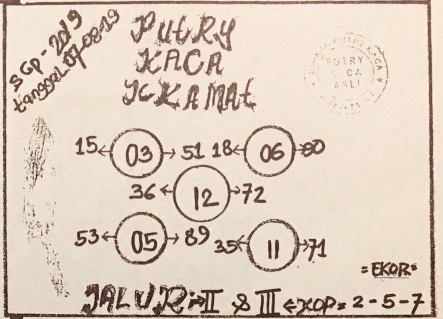 SGp - 2019
tanggal. 07-08-19
PUTRY
KACA
KERAMAT
PUTRY
KACA
ASLI
15 ← 03 → 51
18 ← 06 → 60
36 ← 12 → 72
53 ← 05 → 89
35 ← 11 → 71
= EKOR =
JALUR :→ II & III ← KOP = 2 - 5 - 7